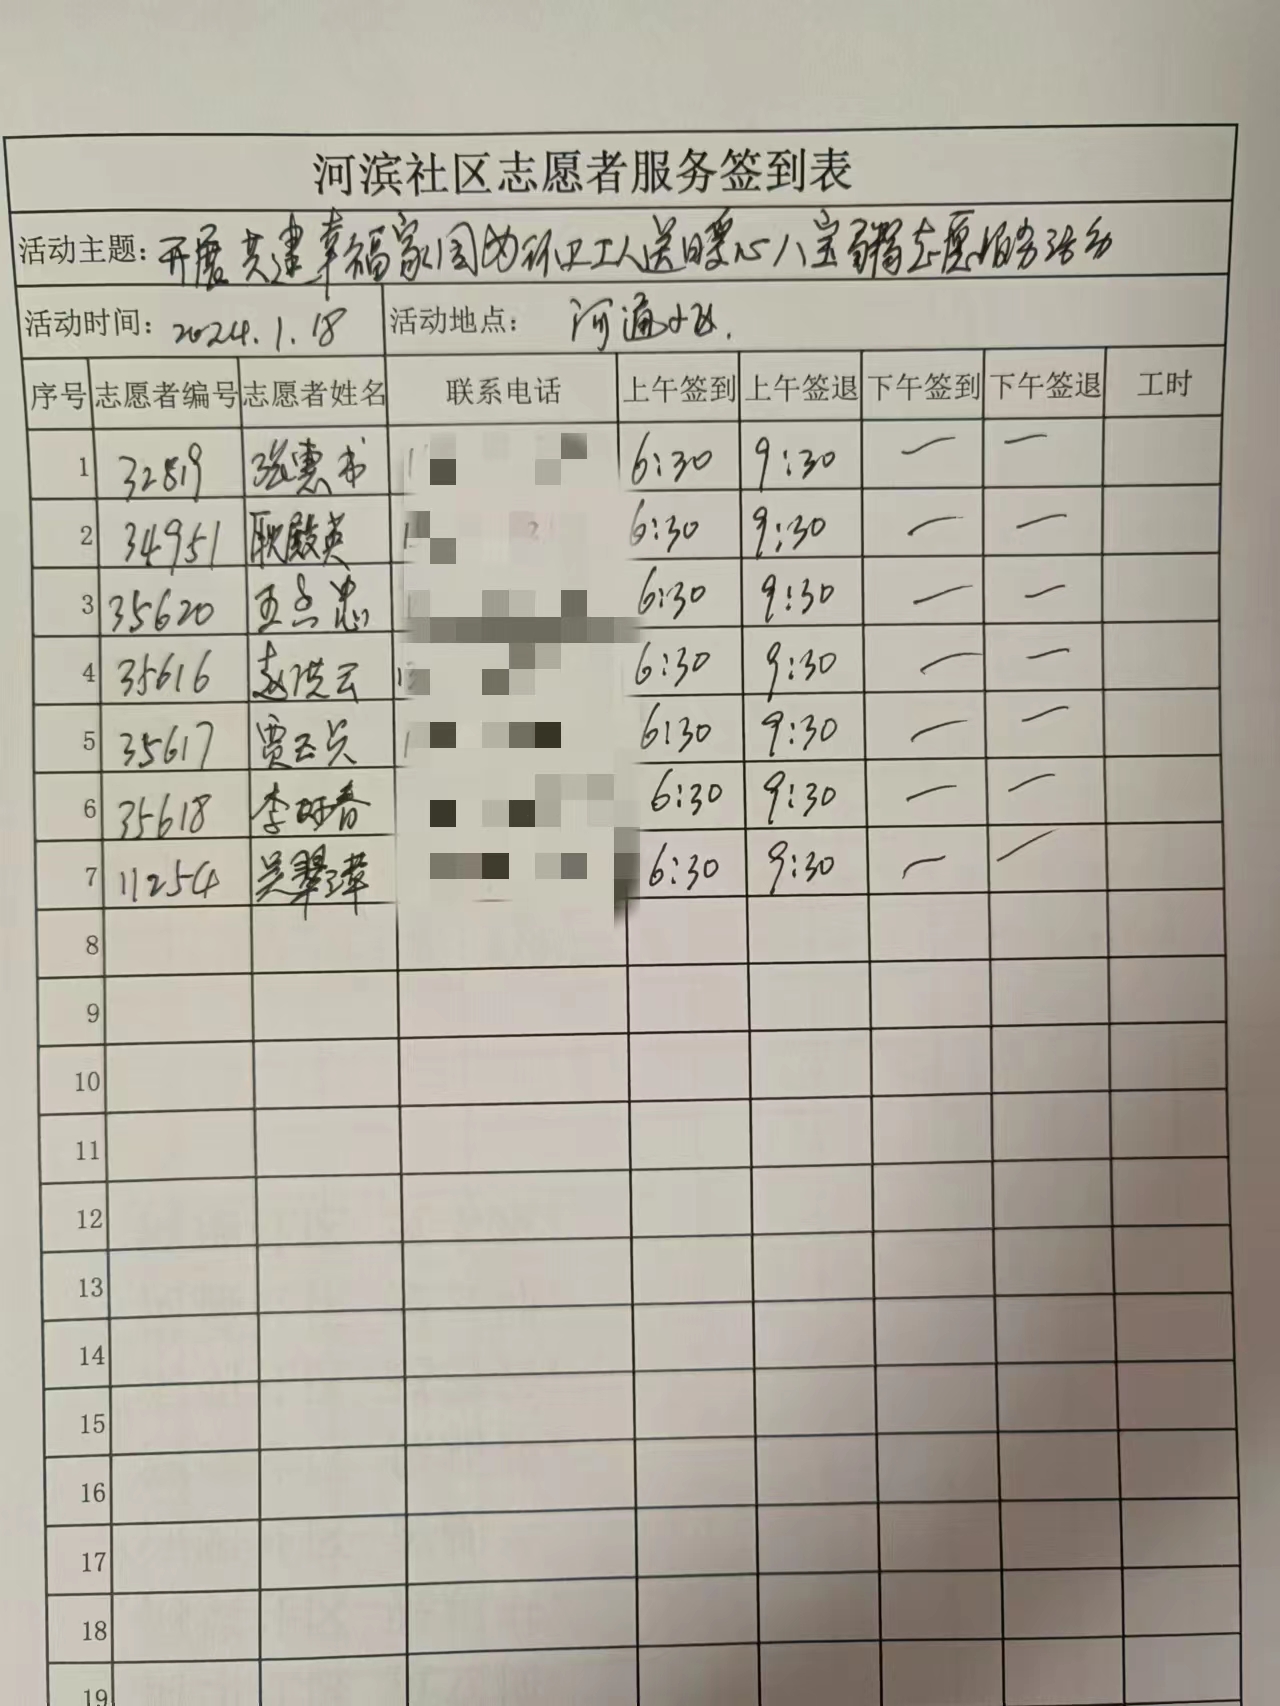 河滨社区志愿者服务签到表
活动主题：开展共建幸福家园为环卫工人送暖心八宝粥志愿服务活动
活动时间：2024.1.18 活动地点：河通小区.
序号 志愿者编号 志愿者姓名 联系电话 上午签到 上午签退 下午签到 下午签退 工时
1 32819 张惠书 1 6:30 9:30 — —
2 34951 耿殿英 1 6:30 9:30 — —
3 35620 王 忠 6:30 9:30 — —
4 35616 赵洪云 6:30 9:30 — —
5 35617 贾玉兵 1 6:30 9:30 — —
6 35618 李 春 6:30 9:30 — —
7 11254 吴翠萍 6:30 9:30 — —
8
9
10
11
12
13
14
15
16
17
18
19